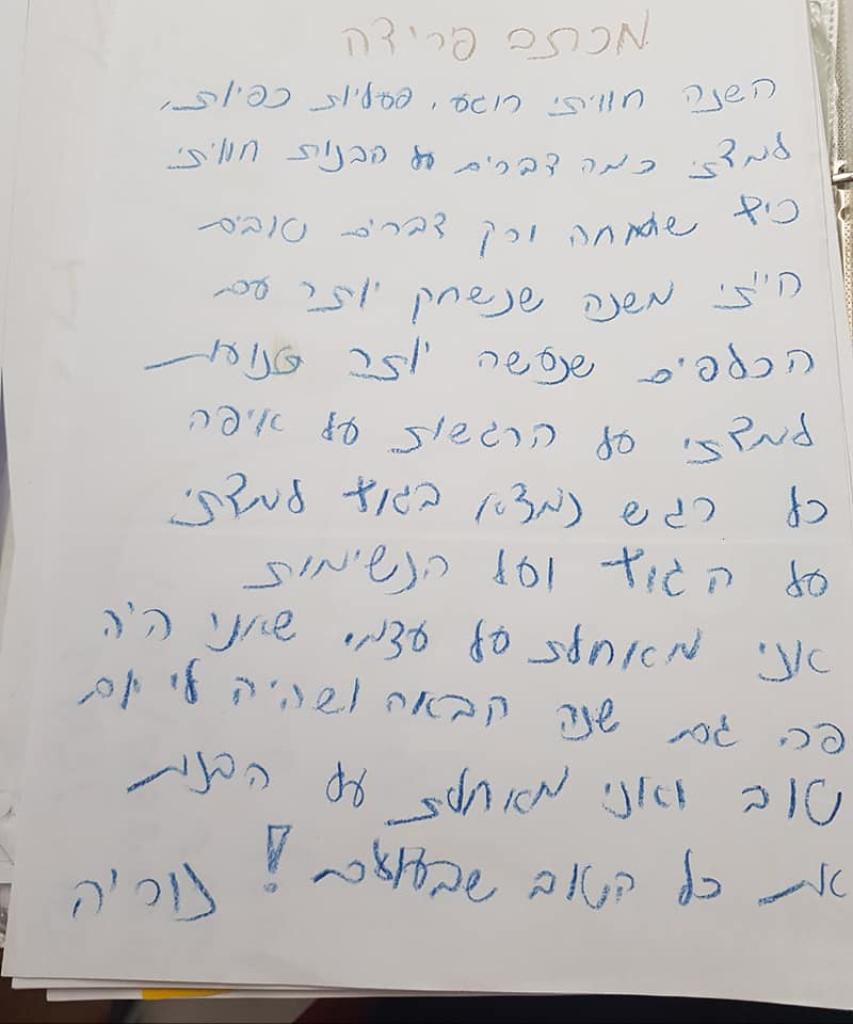 מכתב פרידה
השנה חוויתי רוגע, פעליות כפיות,
למדתי כמה דברים על הבנות חוויתי
כיף שמחה ורק דברים טובים
הייתי משנה שנשחק יותר עם
הכלפים שנעשה יותר תנועות
למדתי על הרגשות על איפה
כל רגש נמצא בגוף למדתי
על הגוף ועל הנשימות
אני מאחלת על עצמי שאני היה
פה גם שנה הבאה ושהיה לי יום
טוב ואני מאחלת על הבנות
את כל הטוב שבעולם!